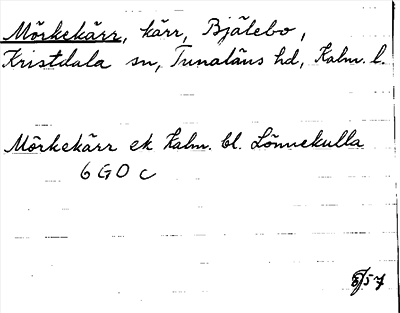 Mörkekärr, kärr, Bjälebo,
Kristdala sn, Tunaläns hd, Kalm. l.
Mörkekärr ek Kalm. bl. Lönnekulla
6 G 0 c
57